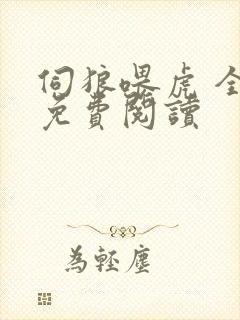 伺狼喂虎 全
免費閱讀
為輕塵